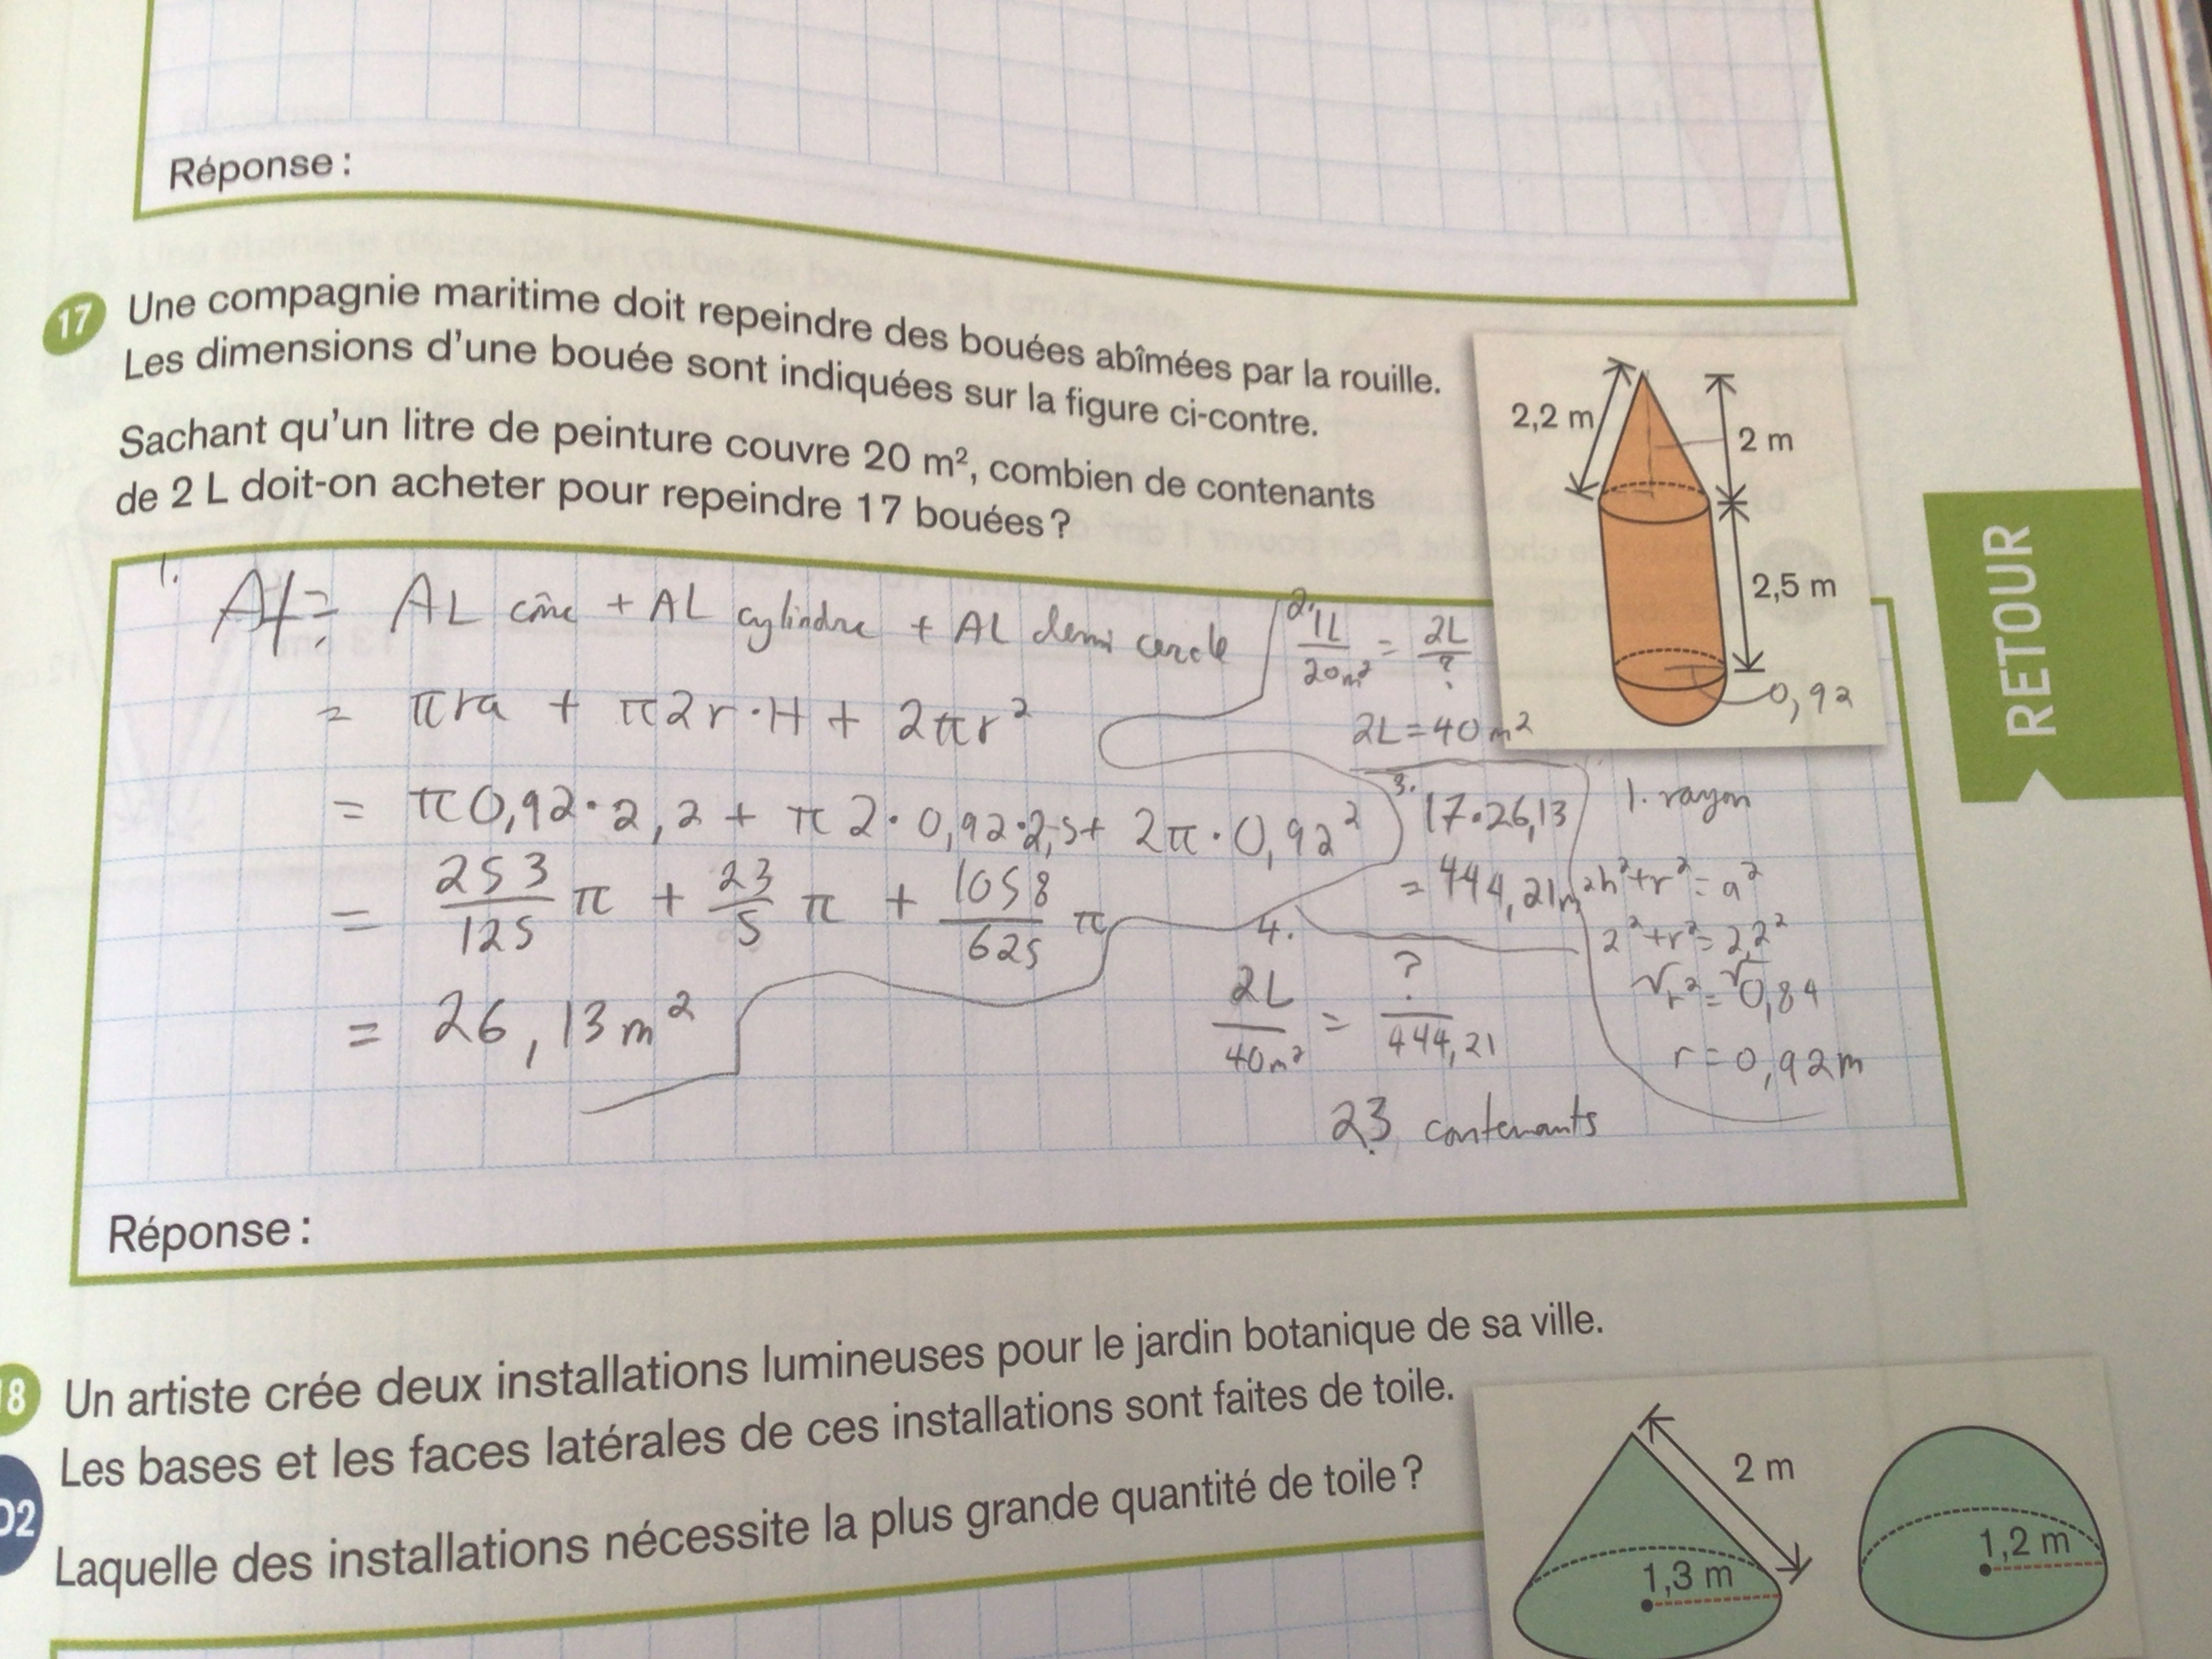 Réponse :
17 Une compagnie maritime doit repeindre des bouées abîmées par la rouille.
Les dimensions d'une bouée sont indiquées sur la figure ci-contre.
Sachant qu'un litre de peinture couvre 20 m², combien de contenants
de 2 L doit-on acheter pour repeindre 17 bouées ?
2,2 m
2 m
2,5 m
0,92
RETOUR
1.
At = AL cône + AL cylindre + AL demi cercle
= πra + π2r·H + 2πr²
= π0,92·2,2 + π2·0,92·2,5+ 2π·0,92²
= 253/125 π + 23/5 π + 1058/625 π
= 26,13 m²
2.
1L/20m² = 2L/?
2L = 40 m²
3. 17·26,13
= 444,21m²
4.
2L/40m² = ?/444,21
23 contenants
1. rayon
h²+r² = a²
2²+r² = 2,2²
√r² = √0,84
r = 0,92m
Réponse :
18 Un artiste crée deux installations lumineuses pour le jardin botanique de sa ville.
Les bases et les faces latérales de ces installations sont faites de toile.
Laquelle des installations nécessite la plus grande quantité de toile ?
2 m
1,3 m
1,2 m